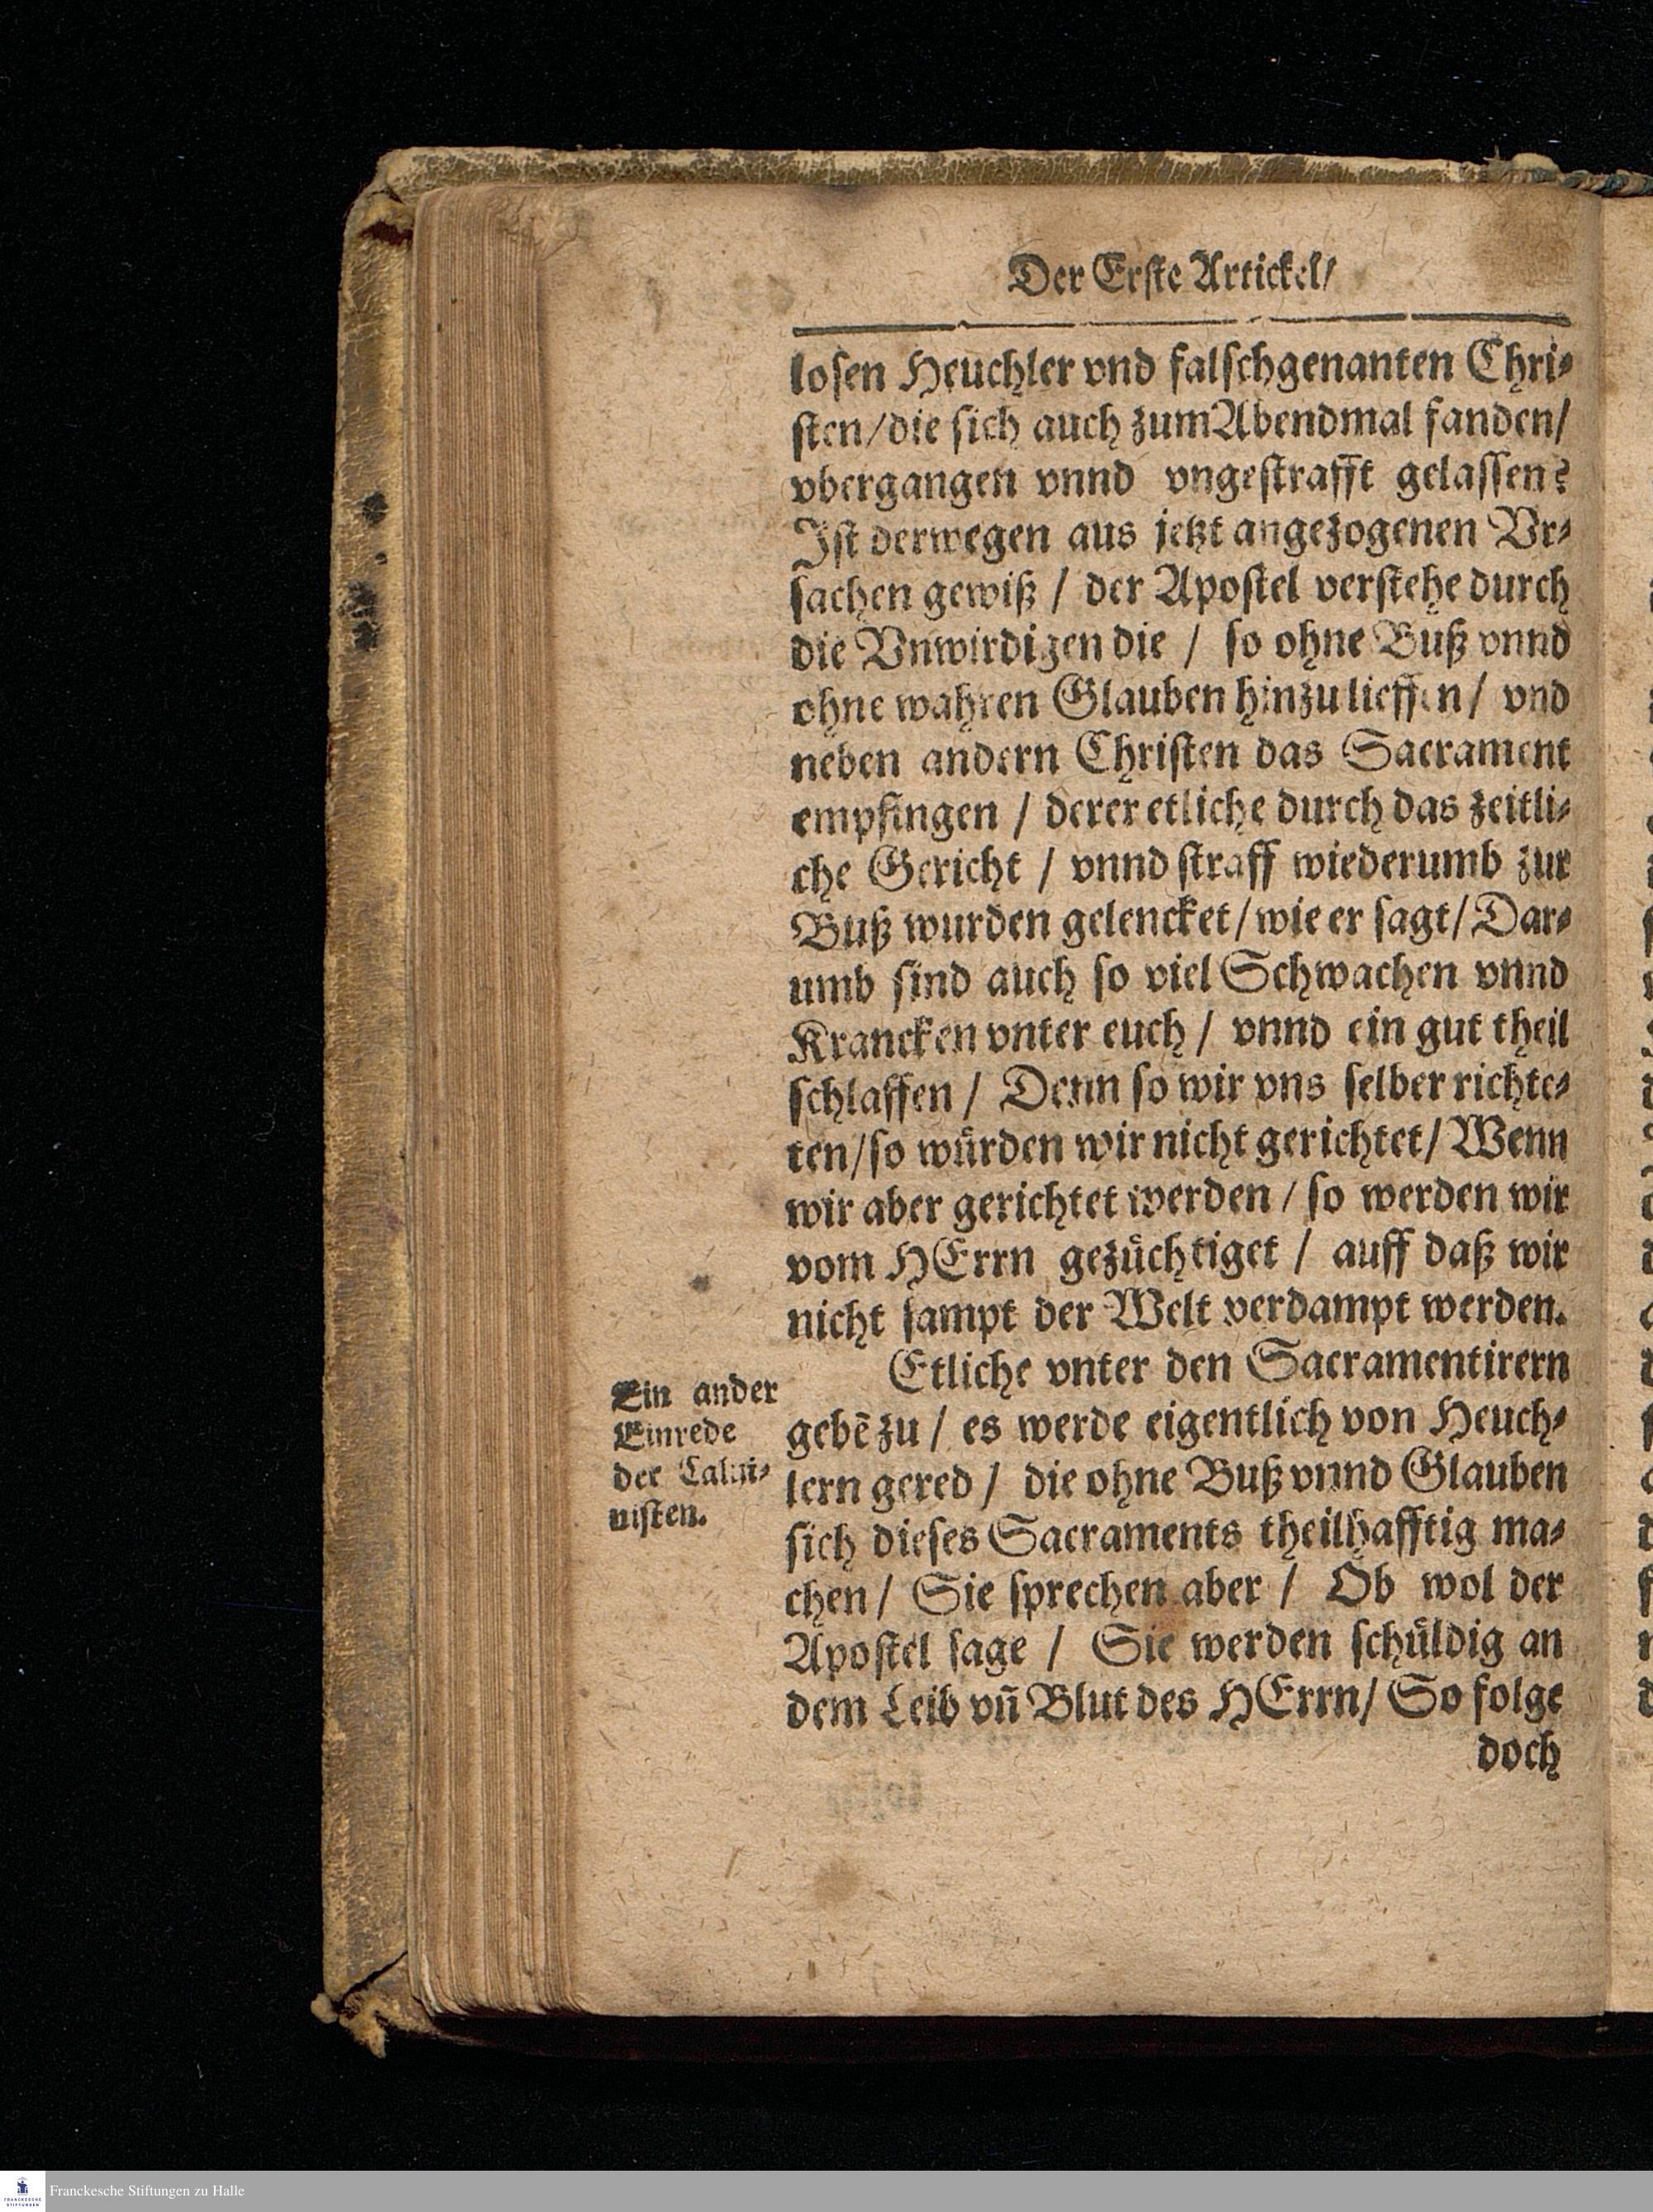 Der Erste Artickel/
losen Heuchler vnd falschgenanten Chri-
sten/die sich auch zum Abendmal fanden/
vbergangen vnnd vngestrafft gelassen?
Ist derwegen aus jetzt angezogenen Vr-
sachen gewiß / der Apostel verstehe durch
die Vnwirdigen die / so ohne Buß vnnd
ohne wahren Glauben hinzu lieffen/ vnd
neben andern Christen das Sacrament
empfingen / derer etliche durch das zeitli-
che Gericht / vnnd straff wiederumb zur
Buß wurden gelencket/wie er sagt/Dar-
umb sind auch so viel Schwachen vnnd
Krancken vnter euch / vnnd ein gut theil
schlaffen / Denn so wir vns selber richte-
ten/so wuͤrden wir nicht gerichtet/Wenn
wir aber gerichtet werden / so werden wir
vom HErrn gezuͤchtiget / auff daß wir
nicht sampt der Welt verdampt werden.
Etliche vnter den Sacramentirern
gebẽ zu / es werde eigentlich von Heuch-
lern gered / die ohne Buß vnnd Glauben
sich dieses Sacraments theilhafftig ma-
chen / Sie sprechen aber / Ob wol der
Apostel sage / Sie werden schuͤldig an
dem Leib vñ Blut des HErrn/ So folge
doch
Ein ander
Einrede
der Calui-
nisten.
Franckesche Stiftungen zu Halle
FRANCKESCHE
STIFTUNGEN